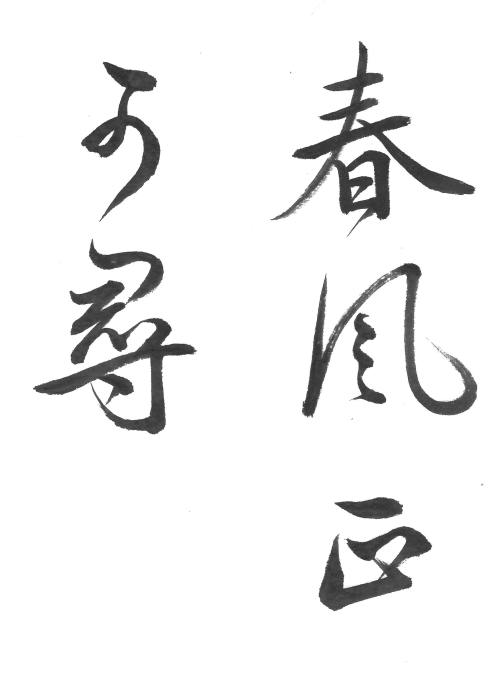 春風正
可尋